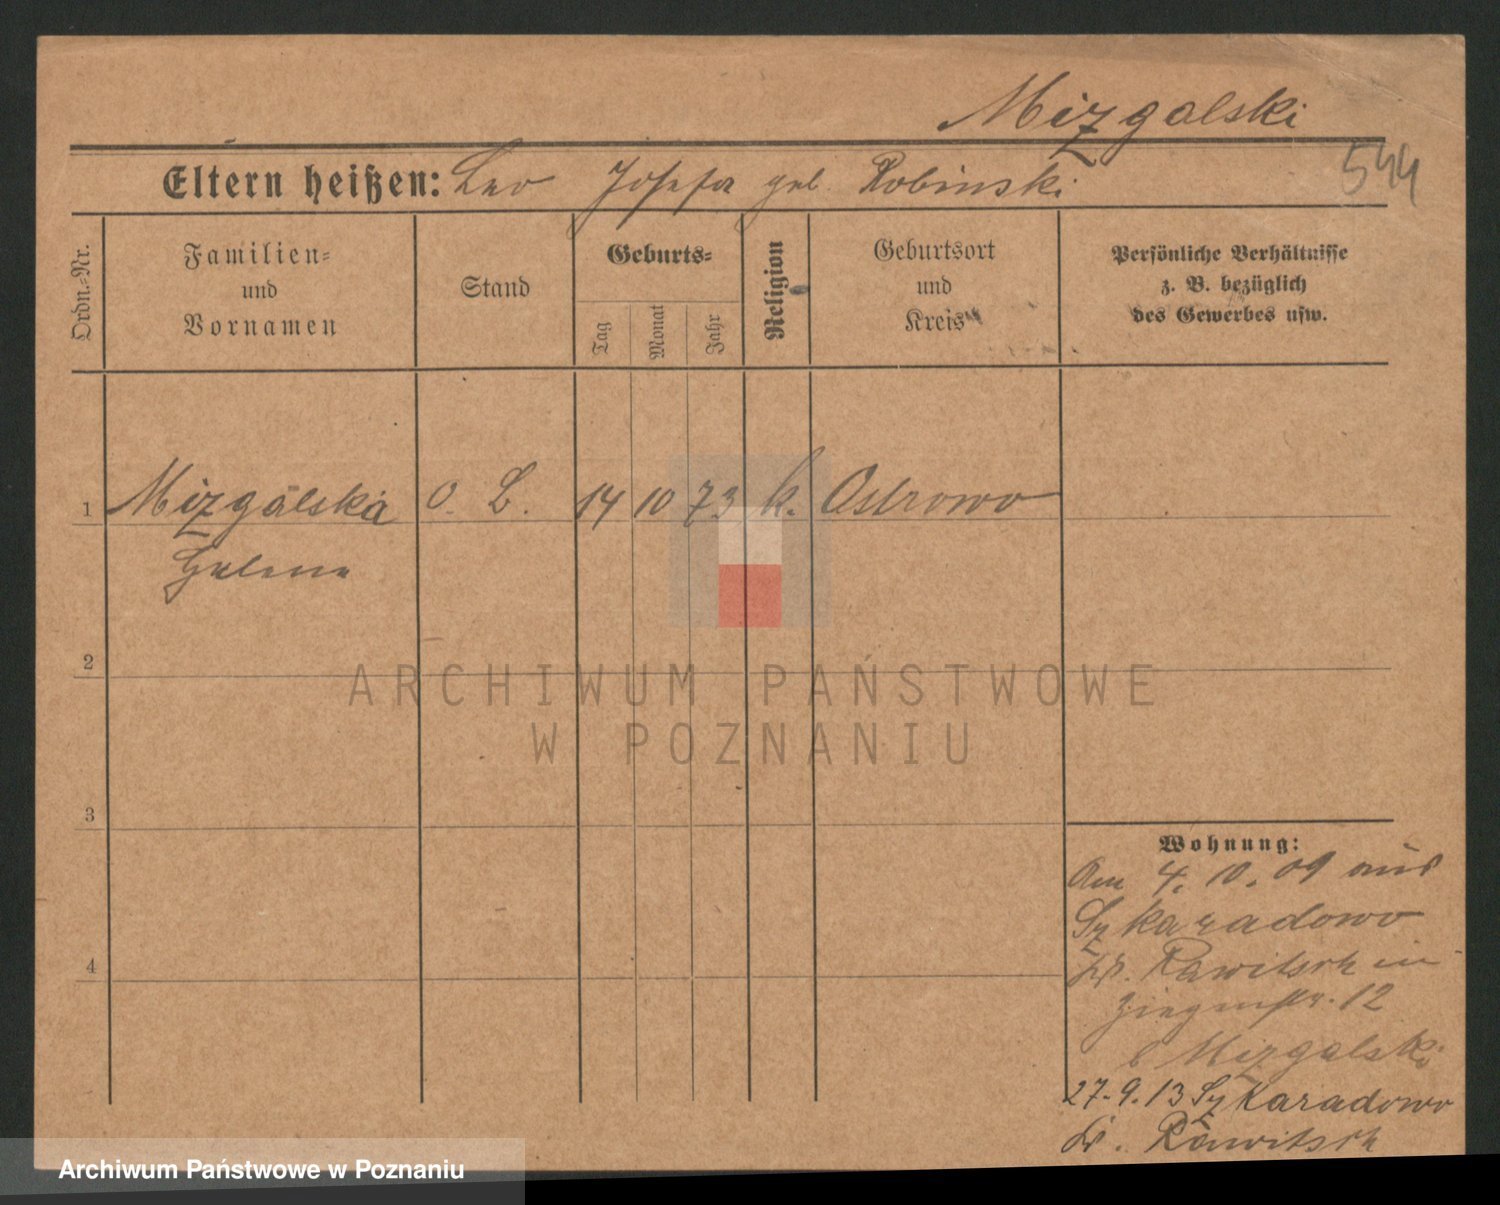 Mizgalski
544
Eltern heißen: Leo Josefa geb. Robinski
Ordn.-Nr.
Familien-
und
Vornamen
Stand
Geburts-
Tag
Monat
Jahr
Religion
Geburtsort
und
Kreis
Persönliche Verhältnisse
z. B. bezüglich
des Gewerbes usw.
1 Mizgalska O. L. 14 10 73 k. Ostrowo
Helene
2
3
4
Wohnung:
Am 4. 10. 09 aus
Szkaradowo
Kr. Rawitsch in
Ziegenstr. 12
b Mizgalski
27.9.13 Szkaradowo
Kr. Rawitsch
ARCHIWUM PAŃSTWOWE
W POZNANIU
Archiwum Państwowe w Poznaniu